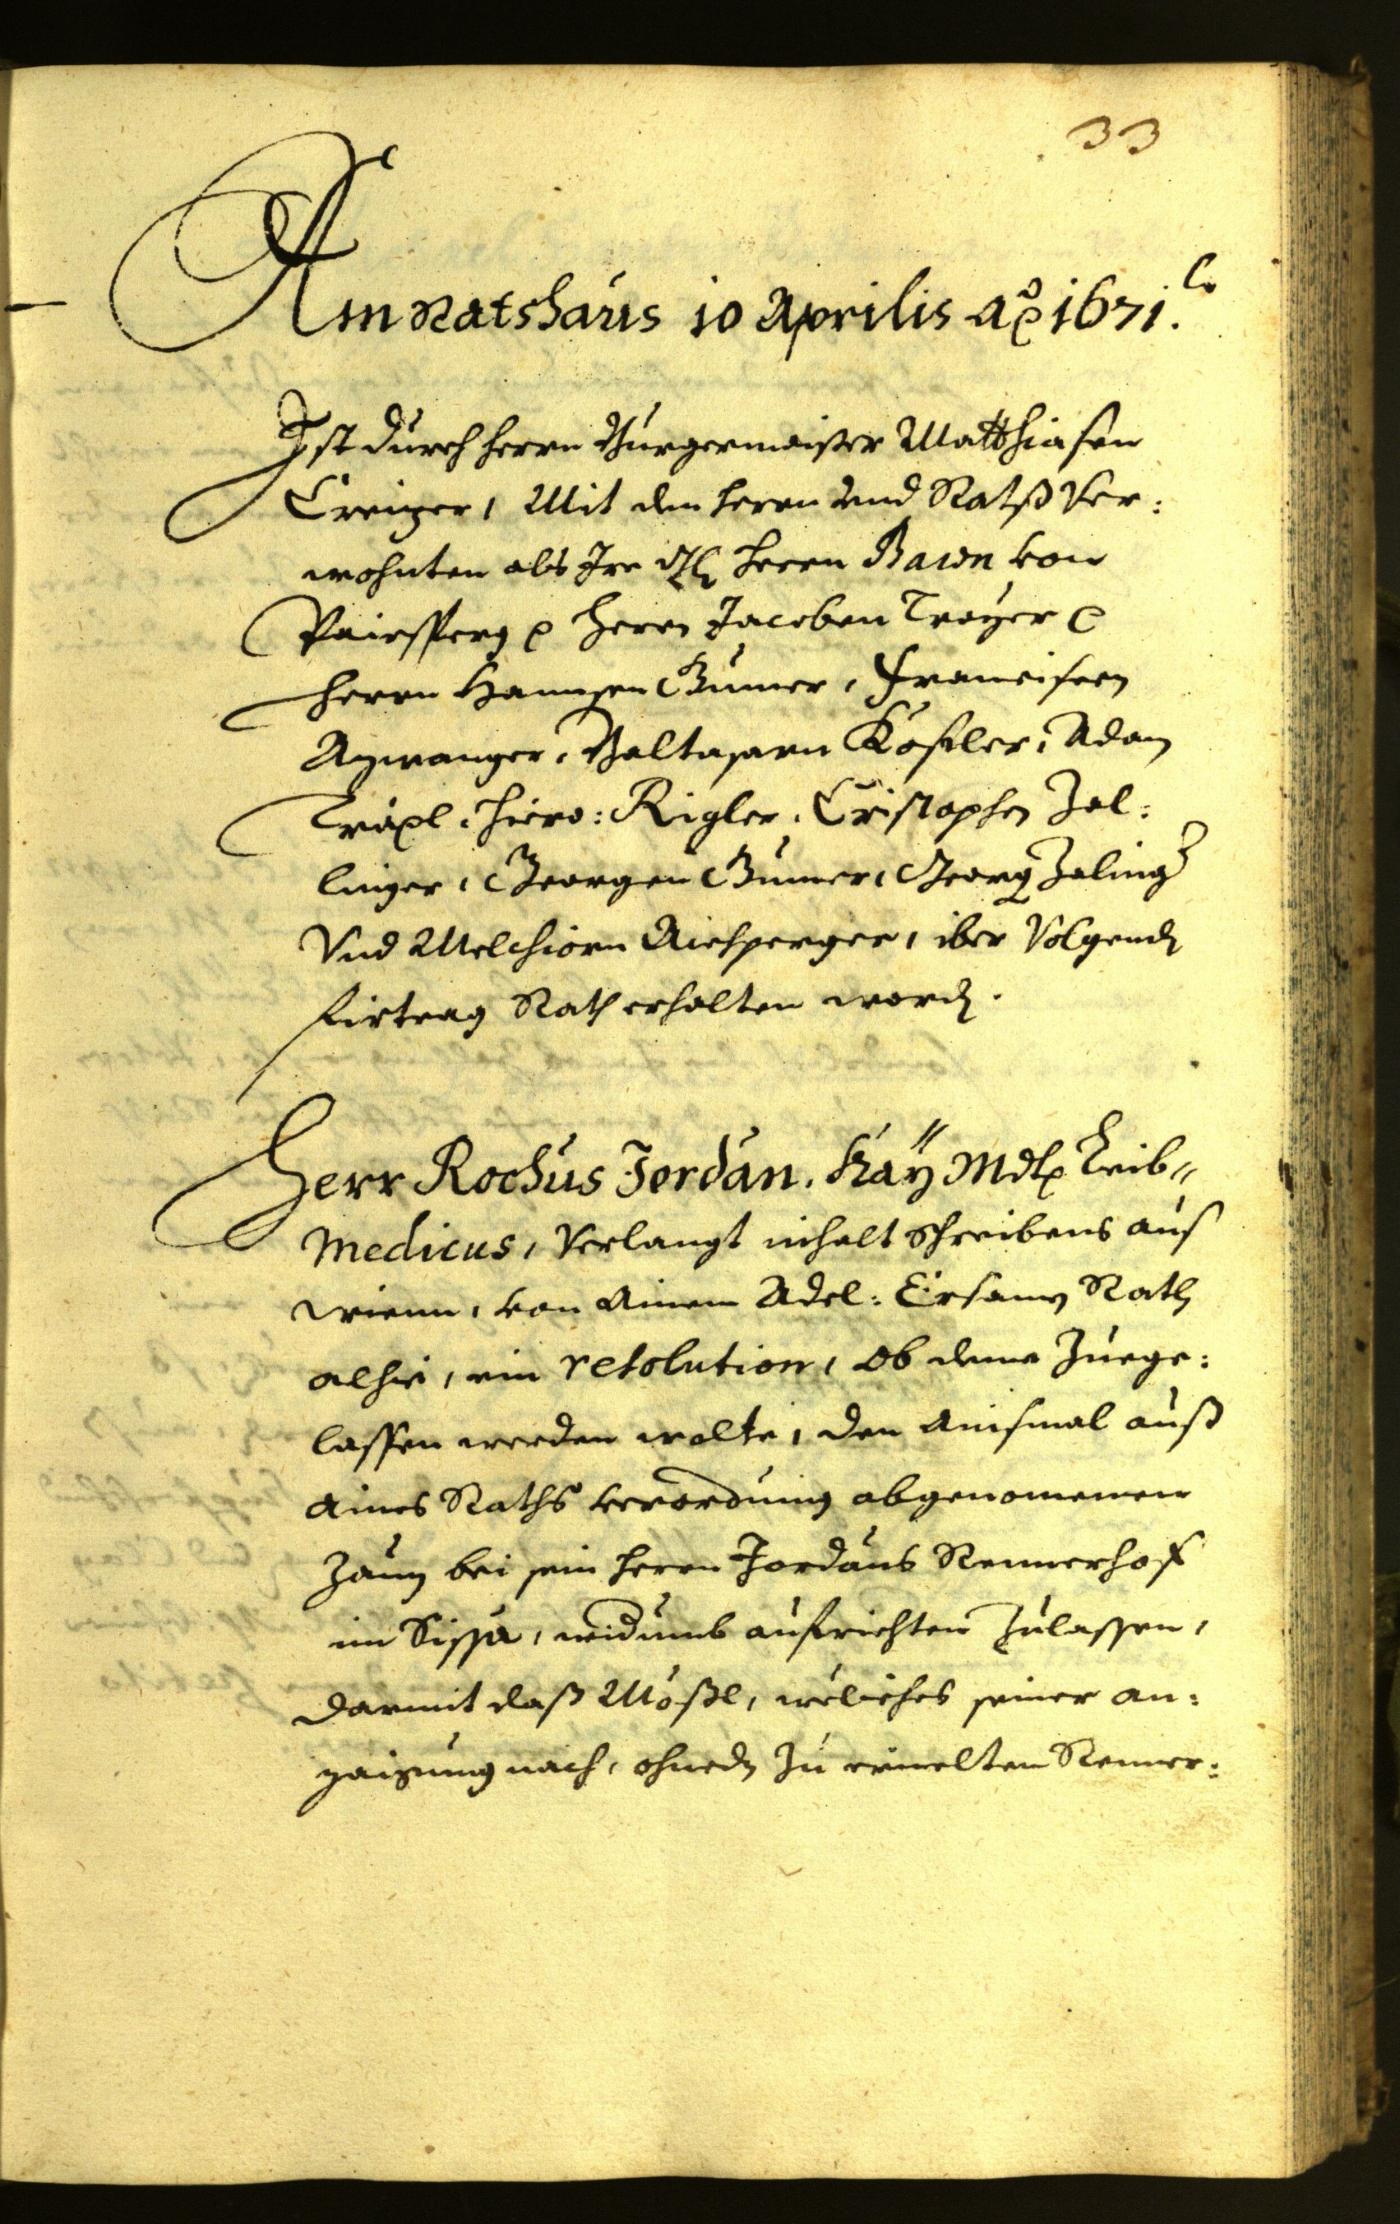 33
Am Ratshaus 10 Aprilis Ao 1671.
Ist durch herrn Burgermaister Matthiasen
Creizer, Mit den herrn und Ratß Ver:
wohnten als Irr herrn Baron von
Paiersperg Herrn Jacoben Troyer
herrn Hannsen Gumer, Franciscen
Azwanger, Baltasarn Kößler, Adam
Träxl, Hiero: Rigler, Cristophen Zal:
linger, Georgen Gumer, Georg Zaling
Vnd Melchiorn Aichperger, iber Volgendn
firtrag Rath erhalten wordn.
Herr Rochus Jordan. Kay Mdt Leib"
Medicus, Verlangt inhalt schreibens aus
wienn, von Ainem Adel: Ersamen Rath
alhie, ein resolution, Ob deme Zuege:
lassen werden wolte, den Ainsmal auß
Aines Raths verordnung abgenomenen
Zaun bei sein herrn Jordans Rennerhof
im Sissa, widumb aufrichten Zulassen,
darmit daß Mößl, weliches seiner an:
zaigung nach, ohnedz Zu ermelten Renner: